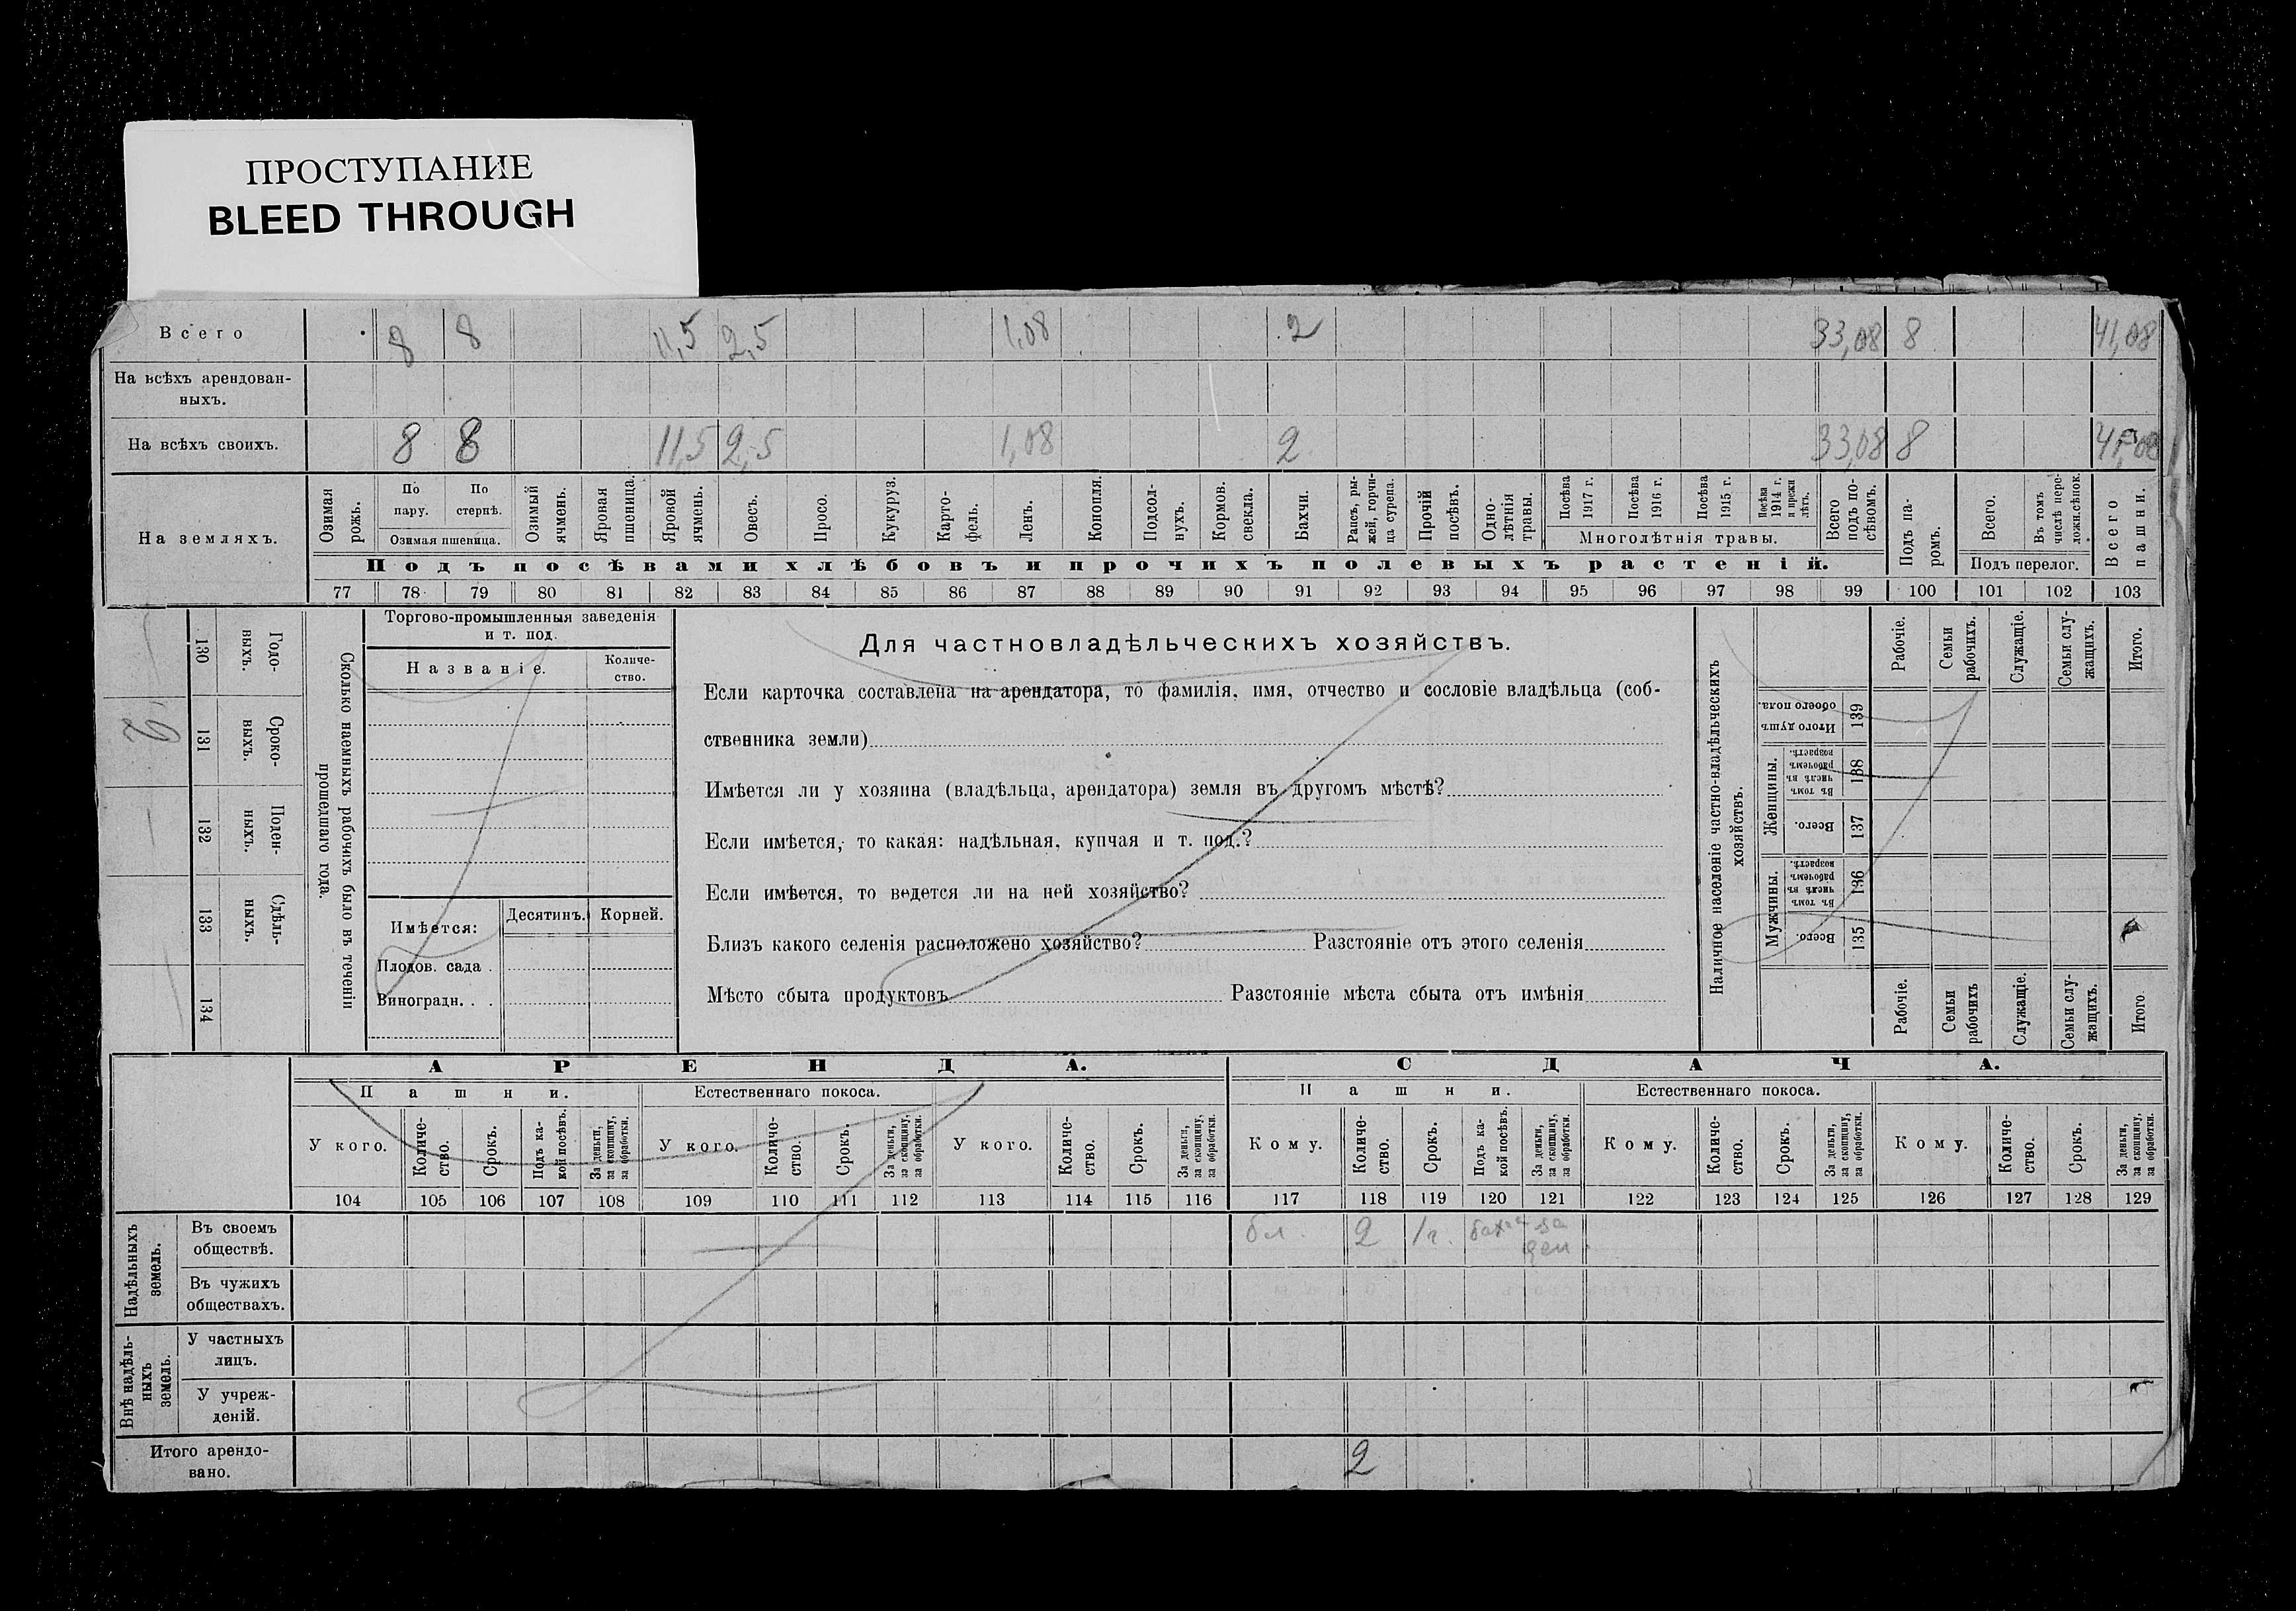 ПРОСТУПАНИЕ
BLEED THROUGH
Всего 8 8 11,5 2,5 1,08 2 33,08 8 41,08
На всѣхъ арендован-
ныхъ.
На всѣхъ своихъ. 8 8 11,5 2,5 1,08 2 33,08 8 41,08
На земляхъ.
Озимая рожь.
По пару.
По стернѣ.
Озимая пшеница.
Озимый ячмень.
Яровая пшеница.
Яровой ячмень.
Овесъ.
Просо.
Кукуруз.
Карто-
фель.
Ленъ.
Конопля.
Подсол-
нухъ.
Кормов. свекла.
Бахчи.
Рапсъ, ры-
жей, горчи-
ца сурепа.
Прочій посѣвъ.
Одно-
лѣтнія травы.
Посѣва 1917 г.
Посѣва 1916 г.
Посѣва 1915 г.
Посѣва 1914 г. и прежн лѣтъ.
Многолѣтнія травы.
Всего подъ по-
сѣвомъ.
Подъ па-
ромъ.
Всего.
Въ томъ числѣ пере-
ложн.сѣнок.
Подъ перелог.
Всего пашни.
Подъ посѣвами хлѣбовъ и прочихъ полевыхъ растеній.
77 78 79 80 81 82 83 84 85 86 87 88 89 90 91 92 93 94 95 96 97 98 99 100 101 102 103
130 Годо-
выхъ.
131 Сроко-
выхъ.
132 Поден-
ныхъ.
133 Сдѣль-
ныхъ.
134
Сколько наемныхъ рабочихъ было въ теченіи
прошедшаго года.
Торгово-промышленныя заведенія
и т. под.
Названіе.
Количе-
ство.
Имѣется:
Десятинъ. Корней.
Плодов. сада .
Виноградн. . .
Для частновладѣльческихъ хозяйствъ.
Если карточка составлена на арендатора, то фамилія, имя, отчество и сословіе владѣльца (соб-
ственника земли)
Имѣется ли у хозяина (владѣльца, арендатора) земля въ другомъ мѣстѣ?
Если имѣется, то какая: надѣльная, купчая и т. под.?
Если имѣется, то ведется ли на ней хозяйство?
Близъ какого селенія расположено хозяйство? Разстояніе отъ этого селенія
Мѣсто сбыта продуктовъ Разстояніе мѣста сбыта отъ имѣнія
Наличное населеніе частно-владѣльческихъ
хозяйствъ.
Рабочіе.
Семьи рабочихъ.
Служащіе.
Семьи слу-
жащихъ.
Итого.
Итого душъ обоего пола. 139
Женщины.
Въ томъ числѣ въ рабочемъ возрастѣ. 138
Всего. 137
Мужчины.
Въ томъ числѣ въ рабочемъ возрастѣ. 136
Всего. 135
Рабочіе.
Семьи рабочихъ
Служащіе.
Семьи слу-
жащихъ.
Итого
АРЕНДА. СДАЧА.
Пашни. Естественнаго покоса. Пашни. Естественнаго покоса.
У кого.
Количе-
ство.
Срокъ.
Подъ ка-
кой посѣвъ.
За деньги, за скопщину, за обработки.
У кого.
Количе-
ство.
Срокъ.
За деньги, за скопщину, за обработки.
У кого.
Количе-
ство.
Срокъ.
За деньги, за скопщину, за обработки.
Кому.
Количе-
ство.
Срокъ.
Подъ ка-
кой посѣвъ.
За деньги, за скопщину, за обработки.
Кому.
Количе-
ство.
Срокъ.
За деньги, за скопщину, за обработки.
Кому.
Количе-
ство.
Срокъ.
За деньги, за скопщину, за обработки.
104 105 106 107 108 109 110 111 112 113 114 115 116 117 118 119 120 121 122 123 124 125 126 127 128 129
Надѣльныхъ земель.
Въ своемъ
обществѣ. 2 1 г. за
Въ чужихъ
обществахъ.
Внѣ надѣль-
ныхъ земель.
У частныхъ
лицъ.
У учреж-
деній.
Итого арендо-
вано. 2